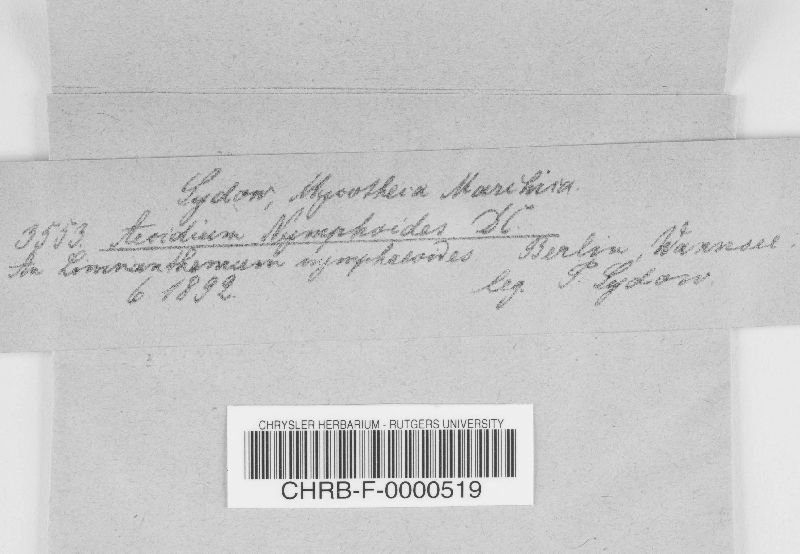 Sydow, Mycotheca Marchica.
3553. Aecidium Nymphoides DC
An Limnanthemum nymphaeoides Berlin, Wannsee.
6 1892. leg. P. Sydow.
CHRYSLER HERBARIUM - RUTGERS UNIVERSITY
CHRB-F-0000519